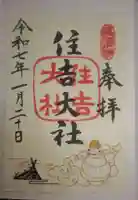 奉拝
住吉大社
住吉
大社
令和七年一月二十日